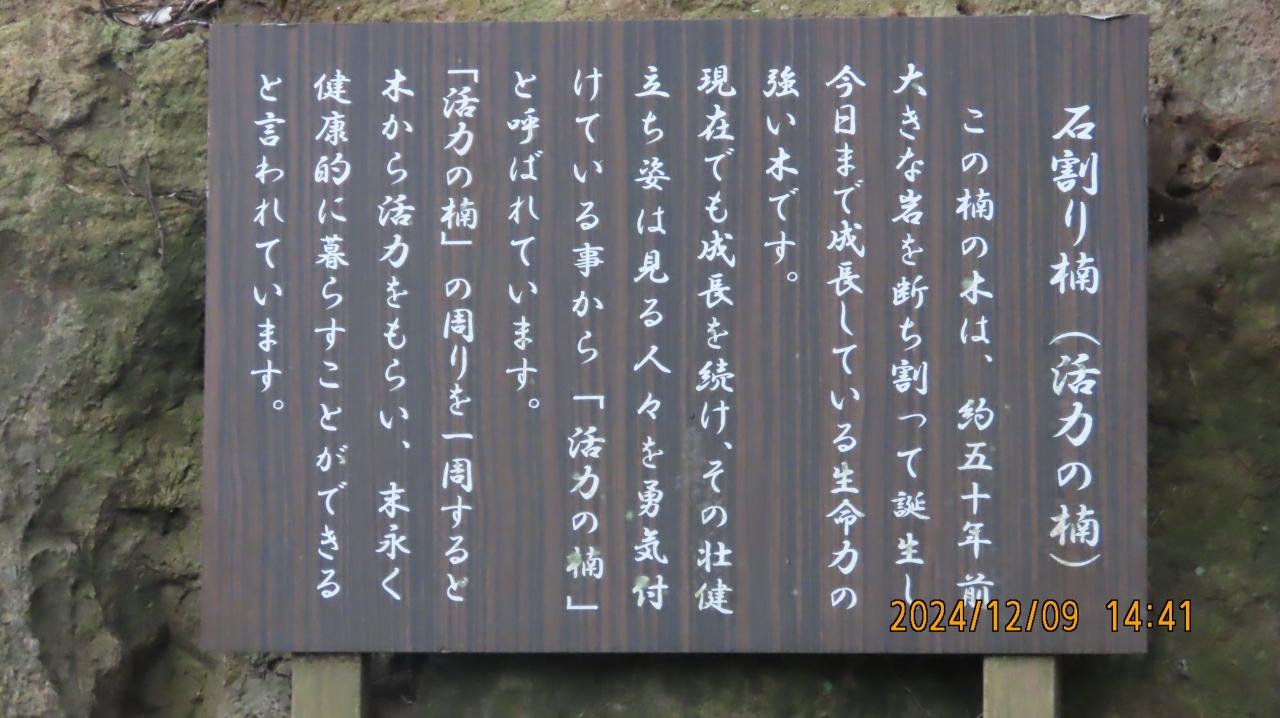 石割り楠（活力の楠）
この楠の木は、約五十年前
大きな岩を断ち割って誕生し
今日まで成長している生命力の
強い木です。
現在でも成長を続け、その壮健
立ち姿は見る人々を勇気付
けている事から「活力の楠」
と呼ばれています。
「活力の楠」の周りを一周すると
木から活力をもらい、末永く
健康的に暮らすことができる
と言われています。
2024/12/09 14:41